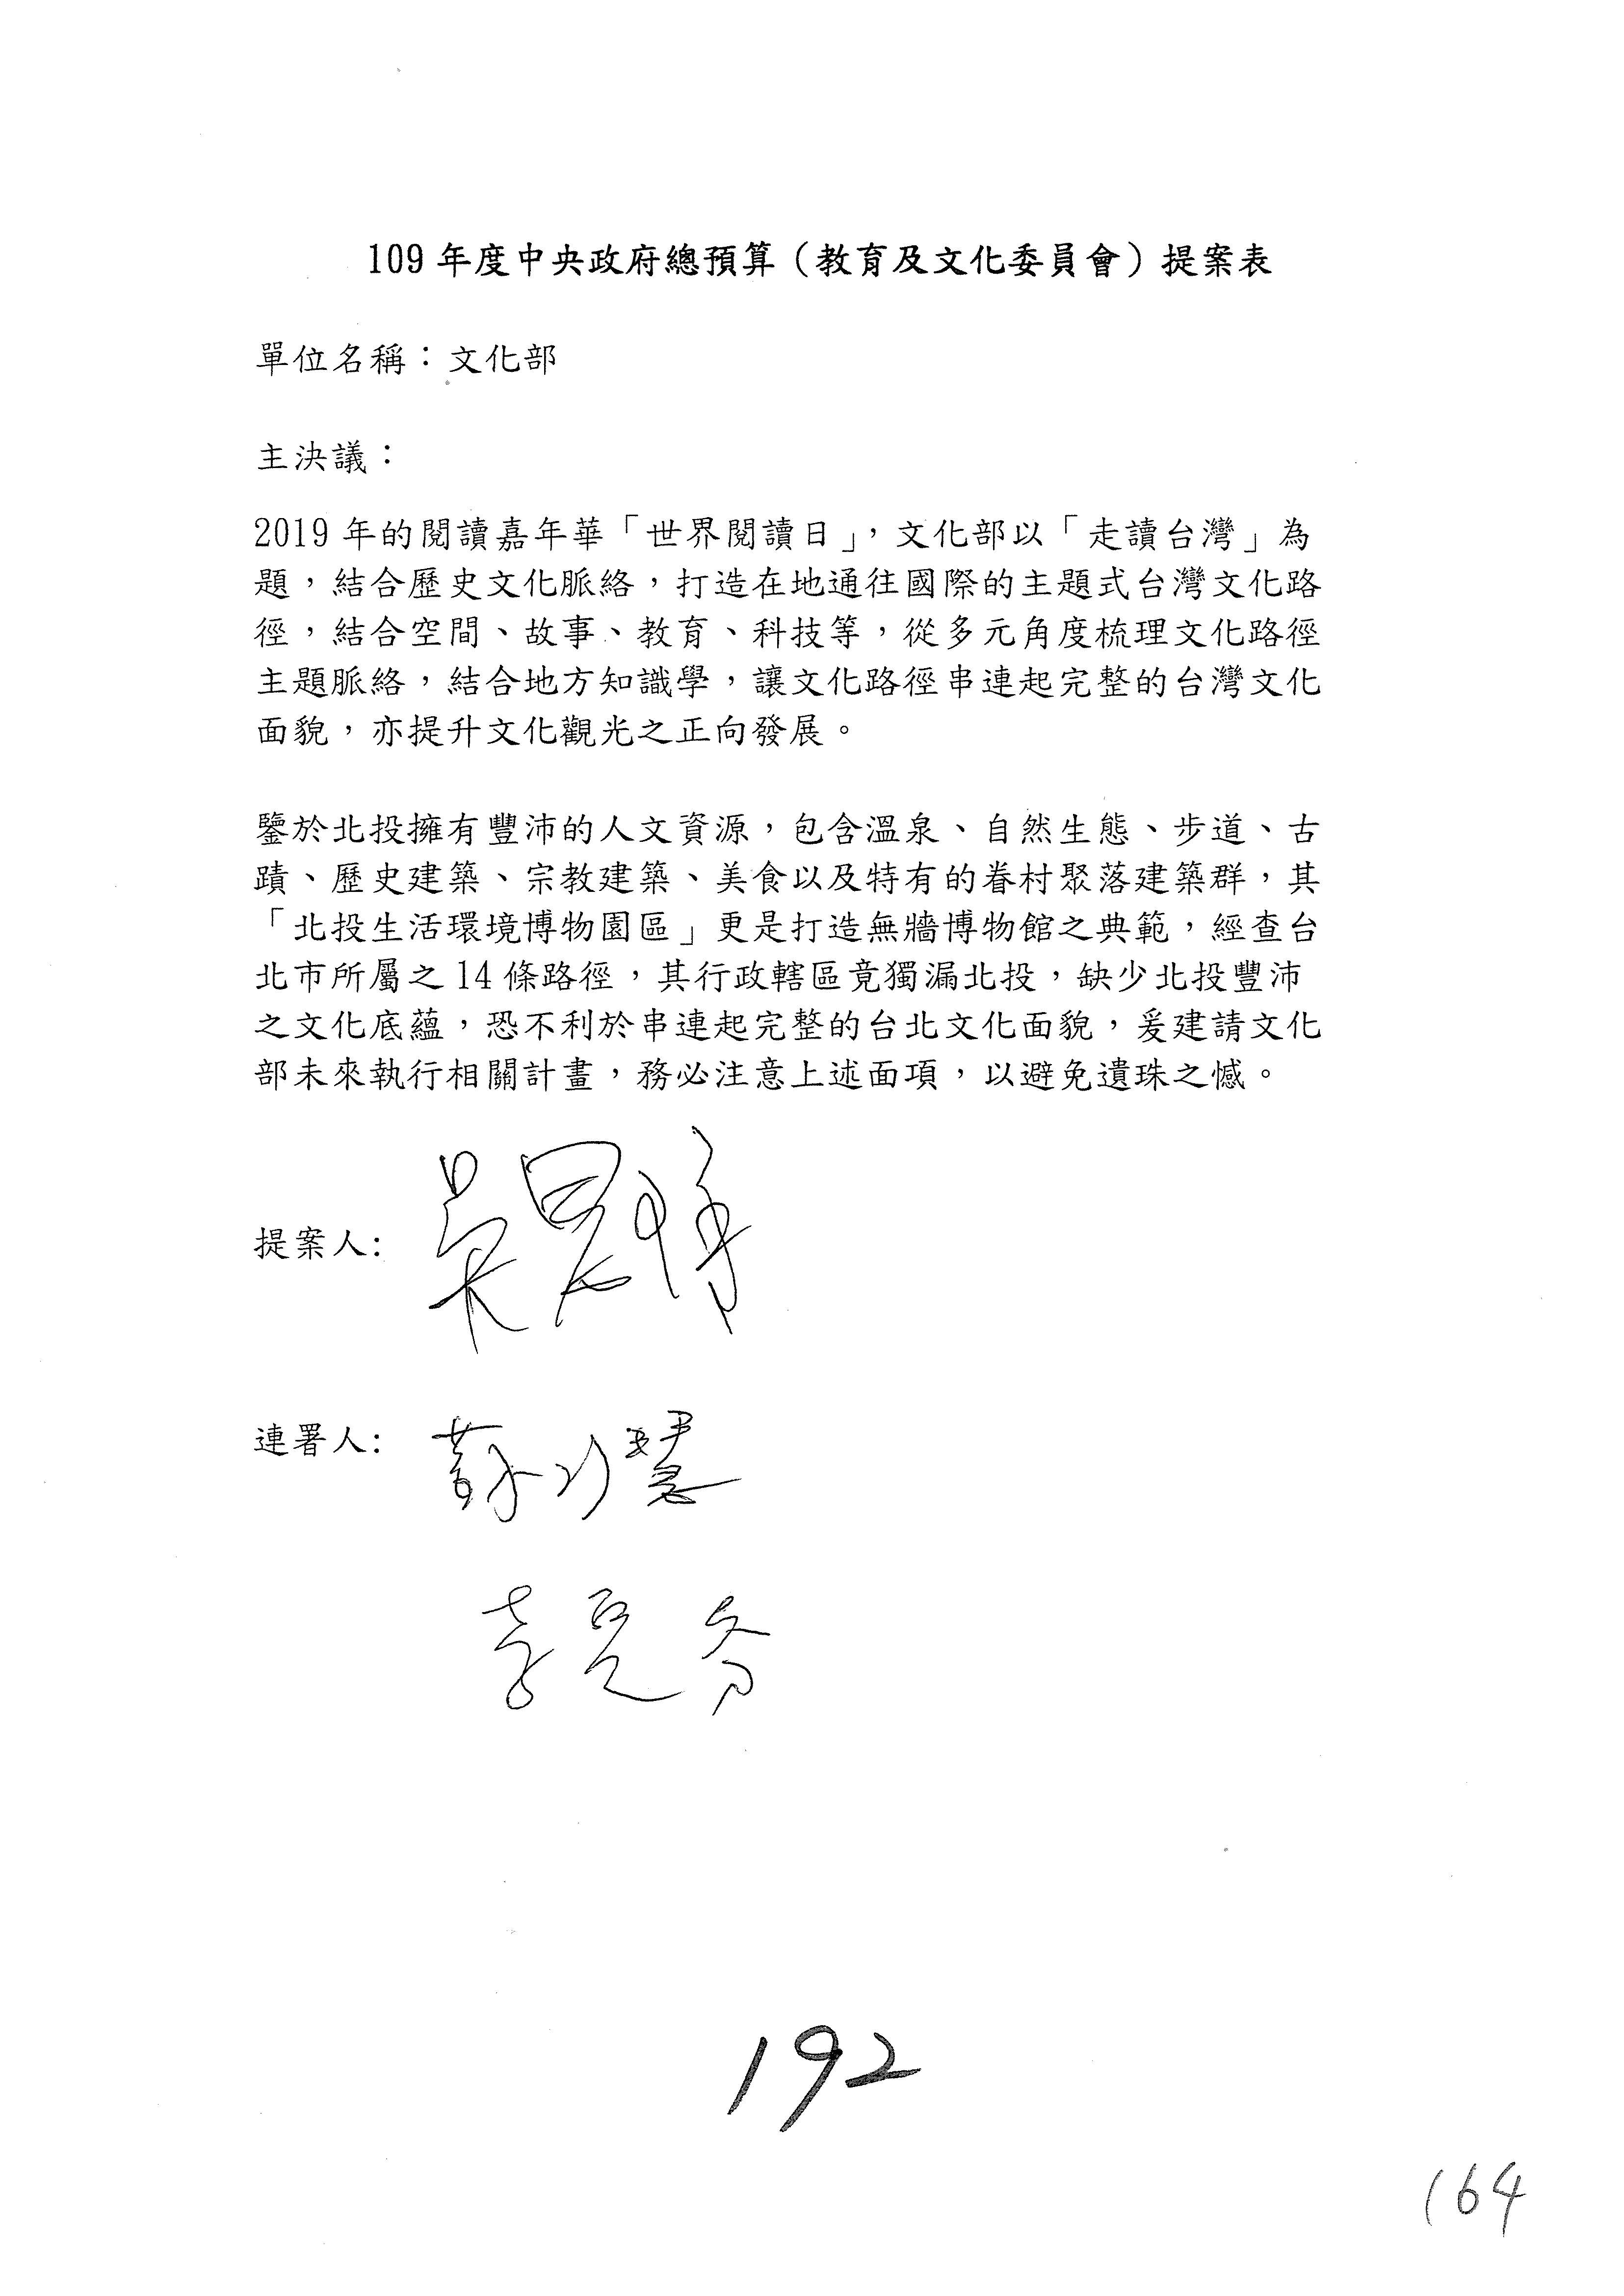 109 年度中央政府總預算（教育及文化委員會）提案表
單位名稱：文化部
主決議：
2019 年的閱讀嘉年華「世界閱讀日」，文化部以「走讀台灣」為
題，結合歷史文化脈絡，打造在地通往國際的主題式台灣文化路
徑，結合空間、故事、教育、科技等，從多元角度梳理文化路徑
主題脈絡，結合地方知識學，讓文化路徑串連起完整的台灣文化
面貌，亦提升文化觀光之正向發展。
鑒於北投擁有豐沛的人文資源，包含溫泉、自然生態、步道、古
蹟、歷史建築、宗教建築、美食以及特有的眷村聚落建築群，其
「北投生活環境博物園區」更是打造無牆博物館之典範，經查台
北市所屬之 14 條路徑，其行政轄區竟獨漏北投，缺少北投豐沛
之文化底蘊，恐不利於串連起完整的台北文化面貌，爰建請文化
部未來執行相關計畫，務必注意上述面項，以避免遺珠之憾。
提案人:
連署人: 蘇巧慧
192
164